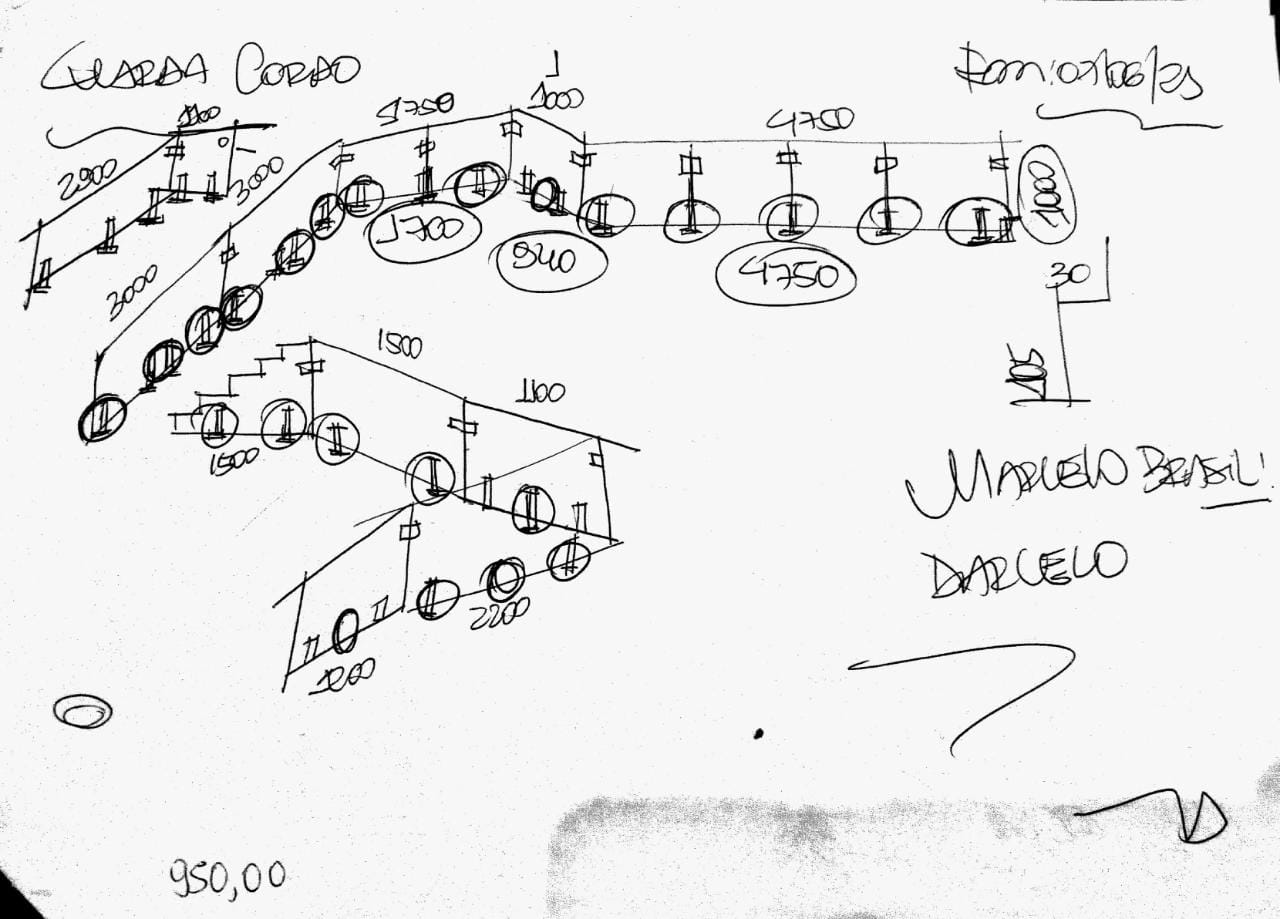 GUARDA CORPO
1100
1750
1000
4750
2900
3000
1000
1700
940
4750
30
3000
105
1500
1100
1500
MARCELO BRASIL!
DARCELO
2200
1200
950,00